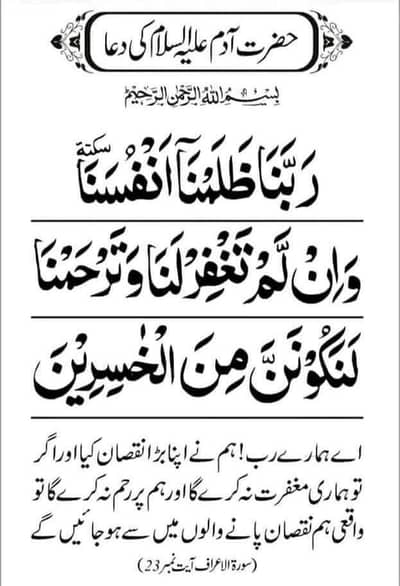 حضرت آدم علیہ السلام کی دعا
بِسْمِ اللهِ الرَّحْمٰنِ الرَّحِيْمِ
رَبَّنَا ظَلَمْنَآ اَنْفُسَنَا سكتة
وَاِنْ لَّمْ تَغْفِرْ لَنَا وَتَرْحَمْنَا
لَنَكُوْنَنَّ مِنَ الْخٰسِرِيْنَ
اے ہمارے رب! ہم نے اپنا بڑا نقصان کیا اور اگر
تو ہماری مغفرت نہ کرے گا اور ہم پر رحم نہ کرے گا تو
واقعی ہم نقصان پانے والوں میں سے ہو جائیں گے
(سورة الاعراف آیت نمبر 23)